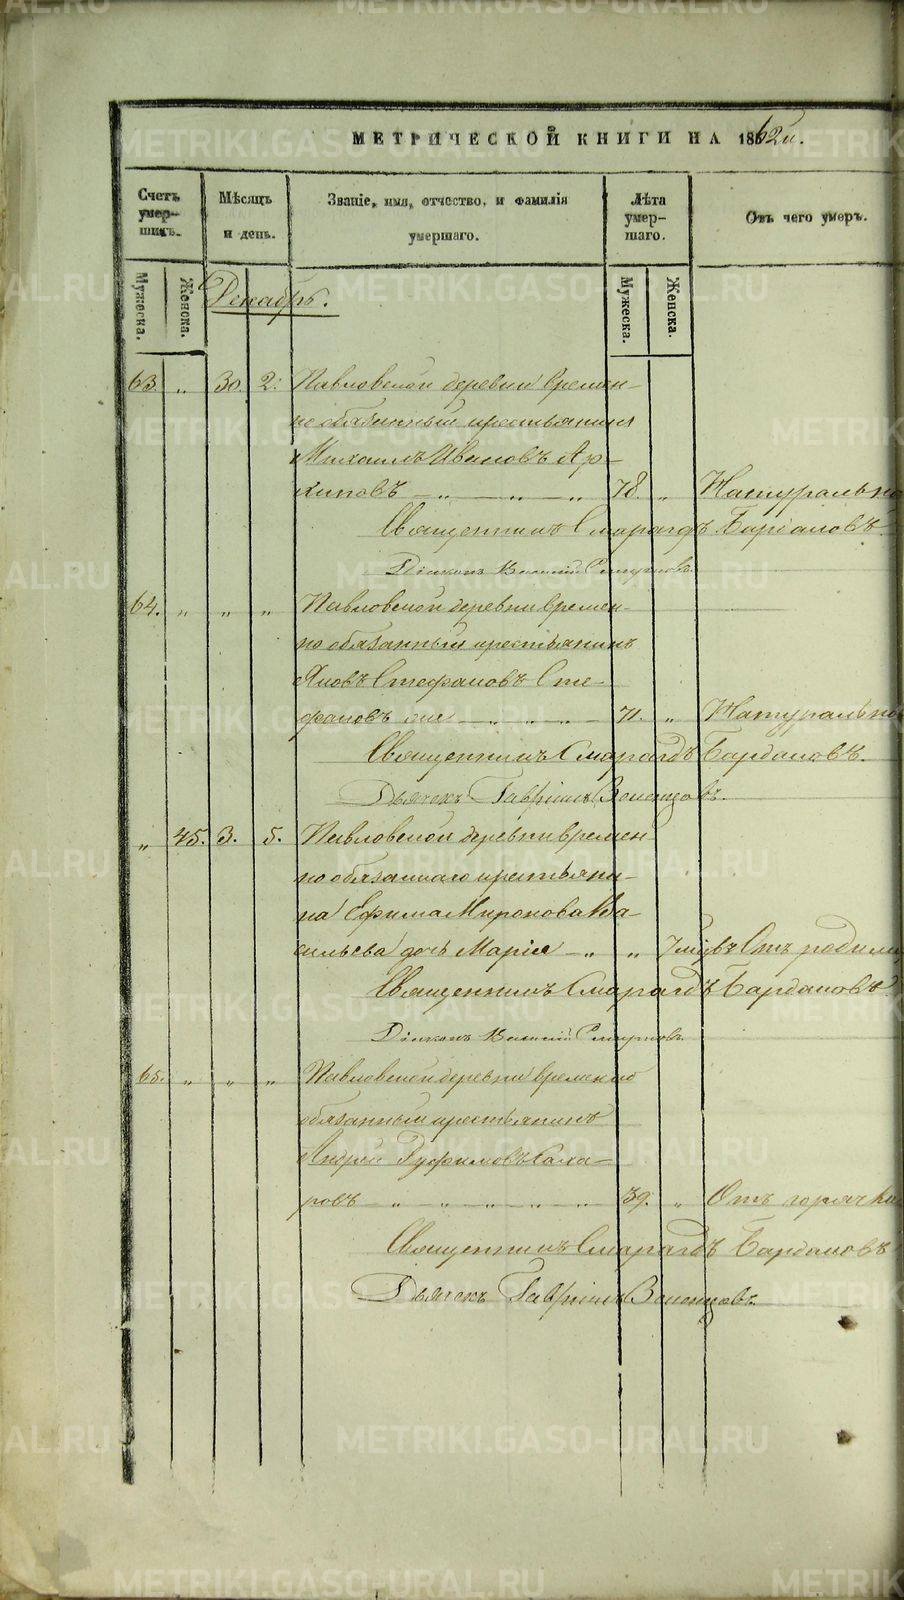 МЕТРИЧЕСКОЙ КНИГИ НА 1862й.
Счетъ умершихъ.
Мѣсяцъ и день.
Званіе, имя, отчество, и фамилія умершаго.
Лѣта умершаго.
Отъ чего умеръ.
Мужеска.
Женска.
Мужеска.
Женска.
Декабрь.
63. „ 30. 2. Павловской деревни времен-
но обязанный крестьянинъ
Михаилъ Ивановъ Ар-
хиповъ — „ — „ — „ 78. „ Натурально
Священникъ Смарагдъ Бирдановъ
Діаконъ Василій Смирновъ.
64. „ „ „ Павловской деревни времен-
но обязанный крестьянинъ
Яковъ Стефановъ Сте-
фановъ же — „ — „ — 71. „ Натурально
Священникъ Смарагдъ Бардановъ.
Дьячекъ Гавріилъ
„ 45. 3. 5. Павловской деревни времен
но обязаннаго крестьяни-
на Ефима Миронова Ва-
сильева дочь Марія — „ „ Отъ родим
Священникъ Смарагдъ Бардановъ
Діаконъ Василій Смирновъ.
65. „ „ „ Павловской деревни временно
обязанный крестьянинъ
Андрей Заха-
ровъ — „ — „ — „ — „ — „ 39. „ Отъ горячки
Священникъ Смарагдъ Бардановъ
Дьячекъ Гавріилъ
METRIKI.GASO-URAL.RU